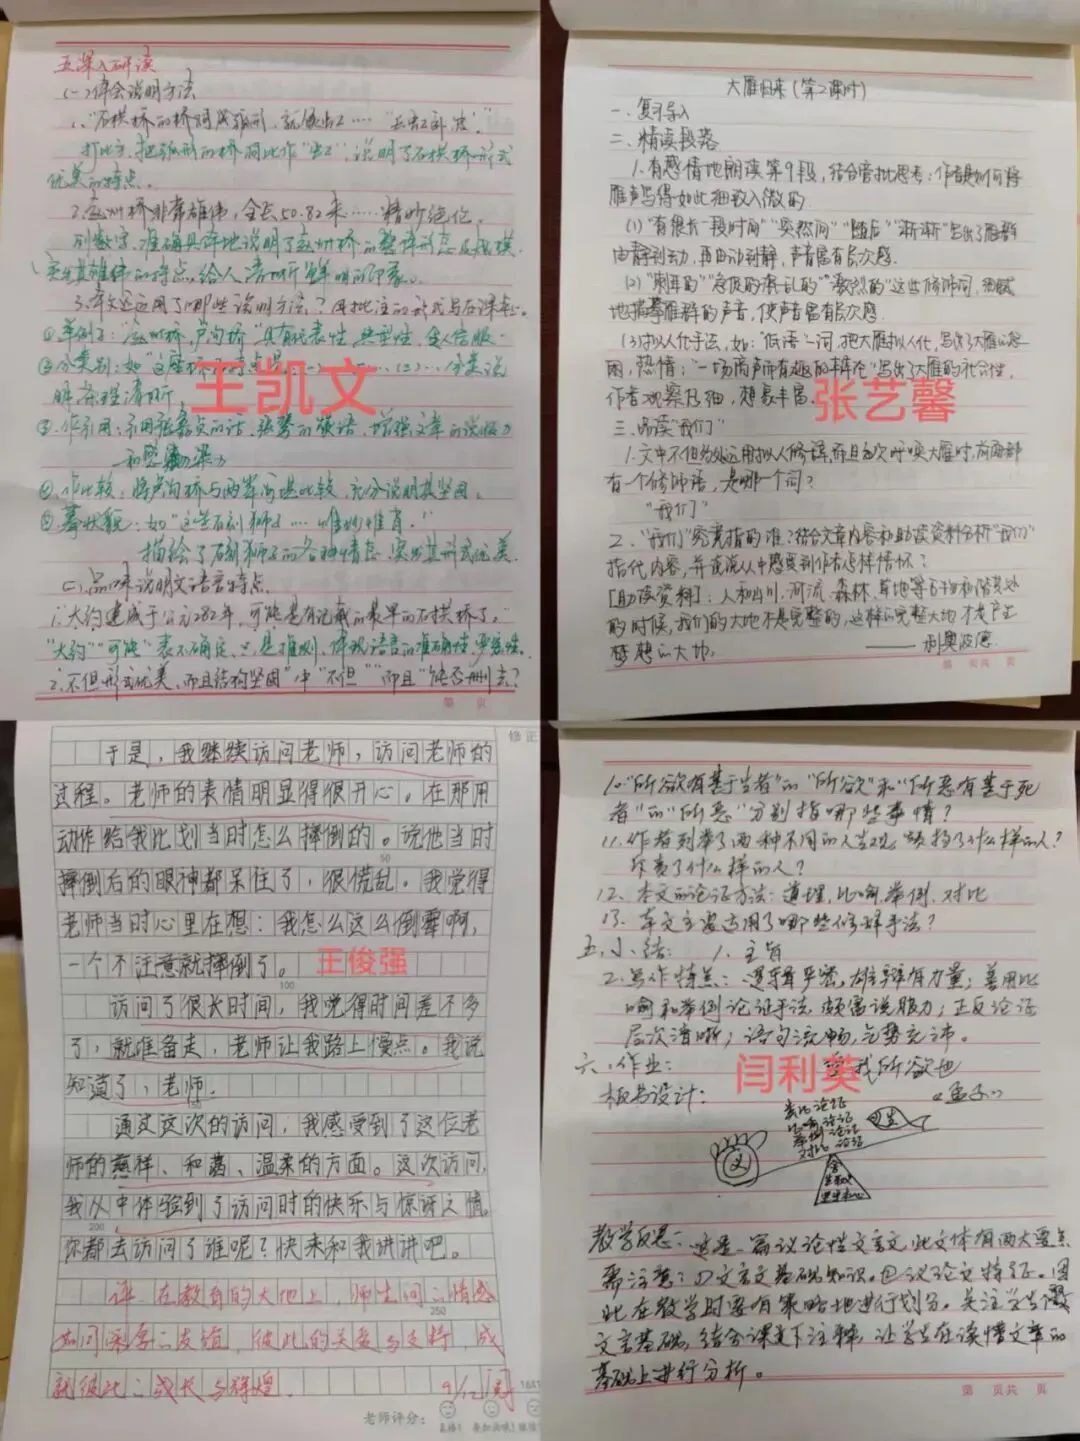 五深入研读
(一)体会说明方法
1."石拱桥的桥洞成弧形,就像虹……"古时神话"。
打比方,把弧形的桥洞比作"虹",说明了石拱桥形式
优美的特点。
2.赵州桥非常雄伟,全长50.82米……精妙绝伦。
列数字,准确具体地说明了赵州桥的整体形态及规模,
突出其雄伟的特点,给人清晰鲜明的印象。
3.本文还运用了哪些说明方法?用批注的形式写在课本。
①举例子:"赵州桥,卢沟桥"具有代表性,典型性,使人信服。
②分类别:如"这座桥的特点是(一)……(二)…分类说
明条理清晰。
王凯文
③作引用:引用张嘉贞的话,张鷟的话,增强文章的说服力
④作比较:将卢沟桥与两岸河堤比较,充分说明其坚固。
⑤摹状貌:如"这些石刻狮子……惟妙惟肖。"
描绘了石刻狮子的各种情态,突出其形式优美
(二)品味说明文语言特点
1."大约建成于公元282年,可能是有记载的最早的石拱桥了。"
"大约""可能"表不确定,只是推测,体现语言的准确性,严密性。
2."不但形式优美,而且结构坚固"中"不但""而且"能否删去?
第 页
大雁归来(第2课时)
一、复习导入
二、精读段落
1.有感情地朗读第9段,结合旁批思考:作者是如何将
雁声写得如此细致入微的
(1)"有很长一段时间""突然间""随后""渐渐"写出了雁群
由静到动,再由动到静,声音富有层次感
(2)"刺耳的""急促的""混乱的""激烈的"这些修饰词,细腻
地描摹雁群的声音,使声音富有层次感
(3)拟人化手法,如:"低语"一词,把大雁拟人化,写出了大雁的
热情;"一场高声而有趣的辩论"写出了大雁的社会性,
作者观察仔细,想象丰富
张艺馨
三、品读"我们"
1.文中不但多处运用拟人修辞,而且每次呼唤大雁时,前面都
有一个修饰语,是哪一个词?
"我们"
2."我们"究竟指的谁?结合文章内容和助读资料分析"我们"
指代内容,并谈谈从中感受到作者怎样情怀?
[助读资料]:人和山川、河流、森林、草地等不能和谐共处
的时候,我们的大地不是完整的,这样的完整大地才是产生
梦想的大地。 ——利奥波德
第 页共 页
修正
于是,我继续访问老师,访问老师的
过程。老师的表情明显得很开心。在那用
动作给我比划当时怎么摔倒的。说他当时
50
摔倒后的眼神都呆住了,很慌乱。我觉得
老师当时心里在想:我怎么这么倒霉啊,
一个不注意就摔倒了。
王俊强
100
访问了很长时间,我觉得时间差不多
了,就准备走,老师让我路上慢点。我说
知道了,老师。
通过这次的访问,我感受到了这位老
师的慈祥、和蔼、温柔的方面。这次访问,
我从中体验到了访问时的快乐与惊讶之情。
200
你都去访问了谁呢?快来和我讲讲吧。
评:在教育的大地上,师生间的情感
250
如同亲厚的友谊,彼此的关爱与支持,成
就彼此的成长与辉煌.
9/12 闫
老师评分:
10."所欲有甚于生者"的"所欲"和"所恶有甚于死
者"的"所恶"分别指哪些事情?
11.作者列举了两种不同的人生观,颂扬了什么样的人?
斥责了什么样的人?
12.本文的论证方法:道理,比喻,举例,对比
13.本文主要运用了哪些修辞手法?
五、小结: 1.主旨
2.写作特点:逻辑严密,雄辩有力量;善用比
喻和举例论证手法,颇富说服力;正反论证
层次清晰;语句流畅,气势充沛。
六、作业:
闫利英
板书设计: 鱼我所欲也
《孟子》
比喻论证
举例论证
对比论证
义
生
教学反思:这是一篇议论性文言文,此文体有两大要点
需注意:①文言文基础知识,②议论文特征。因
此在教学时要有策略地进行划分。关注学生的
文言基础,结合课下注释,让学生在读懂文章的
基础上进行分析。
第 页共 页